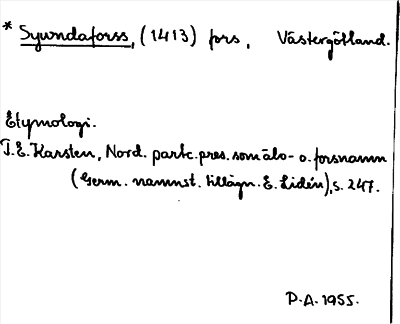 * Sywndaforss, (1413) fors, Västergötland.
Etymologi.
T.E. Karsten, Nord. partc. pres. som älv- o. forsnamn
(Germ. namnst. tillägn. E. Lidén), s. 247.
P.A. 1955.